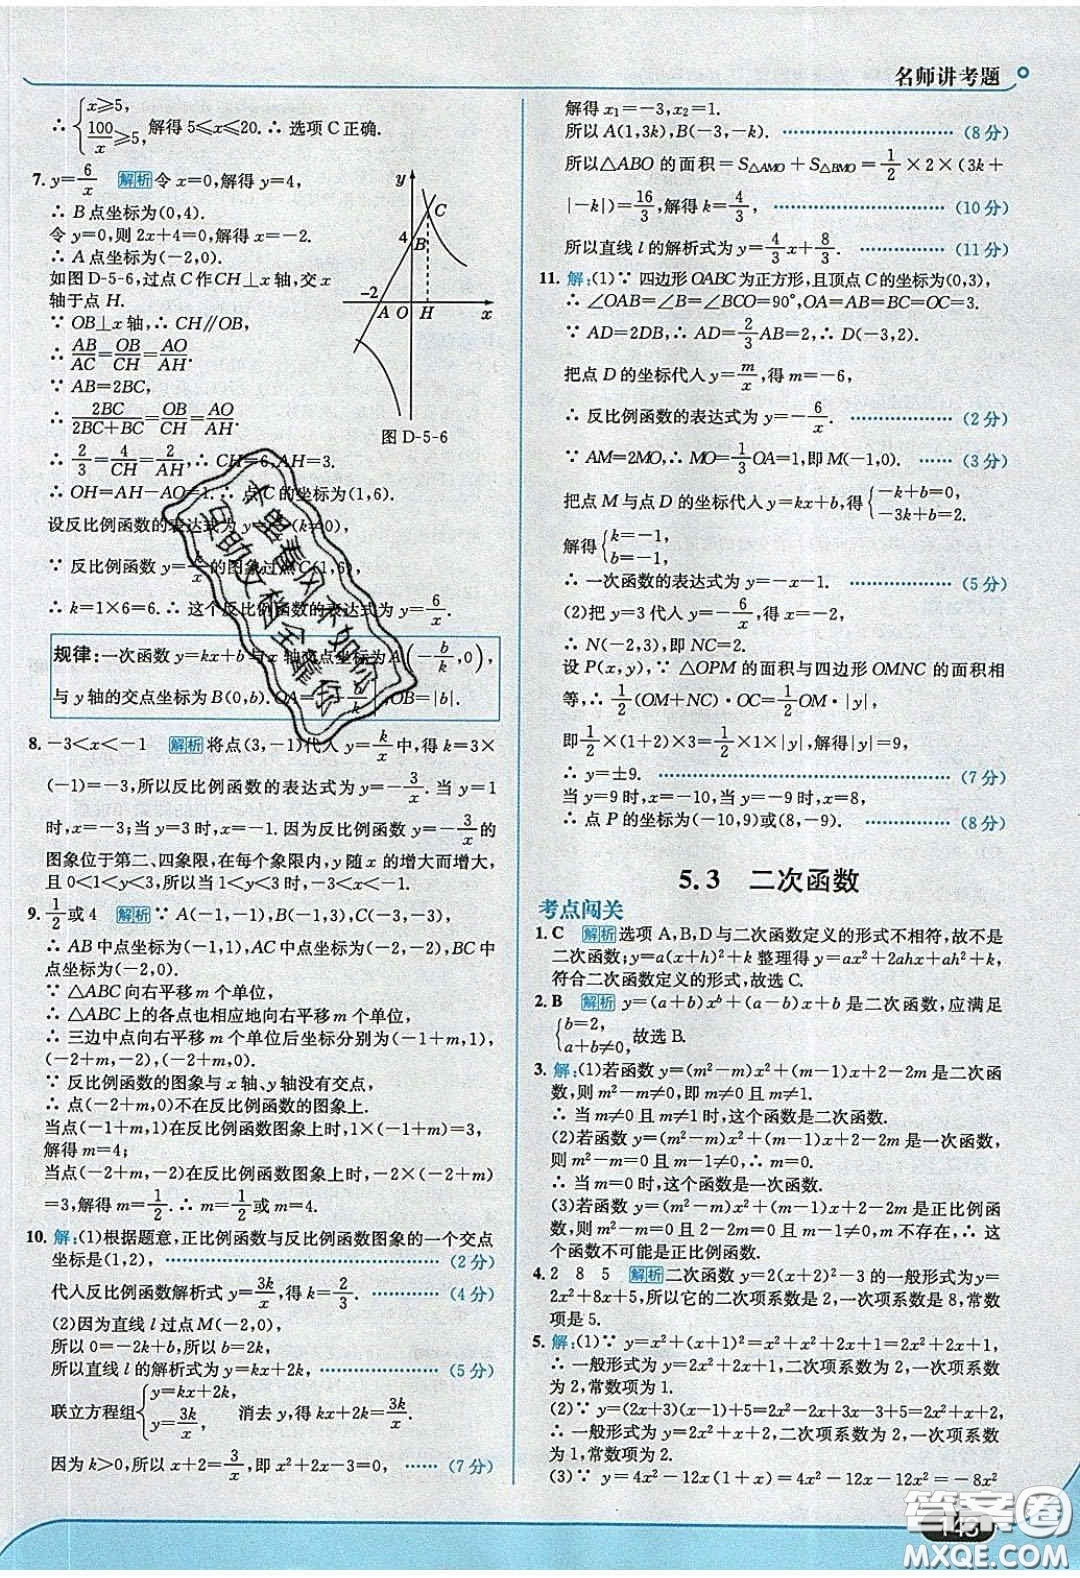 名师讲考题
∴ {x≥5, 100/x≥5, 解得 5≤x≤20. ∴ 选项 C 正确.
7. y=6/x 解析 令 x=0,解得 y=4,
∴ B 点坐标为(0,4).
令 y=0,则 2x+4=0,解得 x=−2.
∴ A 点坐标为(−2,0).
如图 D-5-6,过点 C 作 CH⊥x 轴,交 x
轴于点 H.
∵ OB⊥x 轴,∴ CH∥OB,
∴ AB/AC=OB/CH=AO/AH.
∵ AB=2BC,
∴ 2BC/(2BC+BC)=OB/CH=AO/AH.
y
C
4
B
−2
A O H x
图 D-5-6
∴ 2/3=4/CH=2/AH,∴ CH=6,AH=3.
∴ OH=AH−AO=1.∴ 点 C 的坐标为(1,6).
设反比例函数的表达式为 y=k/x(k≠0),
∵ 反比例函数 y=k/x 的图象过点 C(1,6),
∴ k=1×6=6.∴ 这个反比例函数的表达式为 y=6/x.
规律:一次函数 y=kx+b 与 x 轴交点坐标为 A(−b/k,0),
与 y 轴的交点坐标为 B(0,b).OA=|−b/k|,OB=|b|.
8. −3<x<−1 解析 将点(3,−1)代入 y=k/x 中,得 k=3×
(−1)=−3,所以反比例函数的表达式为 y=−3/x.当 y=1
时,x=−3;当 y=3 时,x=−1.因为反比例函数 y=−3/x 的
图象位于第二、四象限,在每个象限内,y 随 x 的增大而增大,
且 0<1<y<3,所以当 1<y<3 时,−3<x<−1.
9. 1/2或 4 解析 ∵ A(−1,−1),B(−1,3),C(−3,−3),
∴ AB 中点坐标为(−1,1),AC 中点坐标为(−2,−2),BC 中
点坐标为(−2,0).
∵ △ABC 向右平移 m 个单位,
∴ △ABC 上的各点也相应地向右平移 m 个单位,
∴ 三边中点向右平移 m 个单位后坐标分别为(−1+m,1),
(−2+m,−2),(−2+m,0).
∵ 反比例函数的图象与 x 轴、y 轴没有交点,
∴ 点(−2+m,0)不在反比例函数的图象上.
当点(−1+m,1)在反比例函数图象上时,1×(−1+m)=3,
解得 m=4;
当点(−2+m,−2)在反比例函数图象上时,−2×(−2+m)
=3,解得 m=1/2.∴ m=1/2或 m=4.
10. 解:(1)根据题意,正比例函数与反比例函数图象的一个交点
坐标是(1,2), ………… (2 分)
代入反比例函数解析式 y=3k/x,得 k=2/3. ………… (4 分)
(2)因为直线 l 过点 M(−2,0),
所以 0=−2k+b,所以 b=2k.
所以直线 l 的解析式为 y=kx+2k, ………… (5 分)
联立方程组{y=kx+2k, y=3k/x, 消去 y,得 kx+2k=3k/x.
因为 k>0,所以 x+2=3/x,即 x²+2x−3=0, …… (7 分)
解得 x₁=−3,x₂=1.
所以 A(1,3k),B(−3,−k). ………… (8 分)
所以△ABO 的面积=S△AMO+S△BMO=1/2×2×(3k+
|−k|)=16/3,解得 k=4/3, ………… (10 分)
所以直线 l 的解析式为 y=4/3x+8/3. ………… (11 分)
11. 解:(1)∵ 四边形 OABC 为正方形,且顶点 C 的坐标为(0,3),
∴ ∠OAB=∠B=∠BCO=90°,OA=AB=BC=OC=3.
∵ AD=2DB,∴ AD=2/3AB=2,∴ D(−3,2).
把点 D 的坐标代入 y=m/x,得 m=−6,
∴ 反比例函数的表达式为 y=−6/x. ………… (2 分)
∵ AM=2MO,∴ MO=1/3OA=1,即 M(−1,0). …… (3 分)
把点 M 与点 D 的坐标代入 y=kx+b,得{−k+b=0, −3k+b=2.
解得{k=−1, b=−1.
∴ 一次函数的表达式为 y=−x−1. ………… (5 分)
(2)把 y=3 代入 y=−6/x,得 x=−2,
∴ N(−2,3),即 NC=2.
设 P(x,y),∵ △OPM 的面积与四边形 OMNC 的面积相
等,∴ 1/2(OM+NC)·OC=1/2OM·|y|,
即1/2×(1+2)×3=1/2×1×|y|,解得|y|=9,
∴ y=±9. ………… (7 分)
当 y=9 时,x=−10,当 y=−9 时,x=8,
∴ 点 P 的坐标为(−10,9)或(8,−9). ………… (8 分)
5.3 二次函数
考点闯关
1. C 解析 选项 A,B,D 与二次函数定义的形式不相符,故不是
二次函数;y=a(x+h)²+k 整理得 y=ax²+2ahx+ah²+k,
符合二次函数定义的形式,故选 C.
2. B 解析 y=(a+b)xᵇ+(a−b)x+b 是二次函数,应满足
{b=2, a+b≠0, 故选 B.
3. 解:(1)若函数 y=(m²−m)x²+(m−1)x+2−2m 是二次函
数,则 m²−m≠0,即 m≠0 且 m≠1.
∴ 当 m≠0 且 m≠1 时,这个函数是二次函数.
(2)若函数 y=(m²−m)x²+(m−1)x+2−2m 是一次函数,
则 m²−m=0 且 m−1≠0,∴ m=0.
∴ 当 m=0 时,这个函数是一次函数.
(3)若函数 y=(m²−m)x²+(m−1)x+2−2m 是正比例函
数,则 m²−m=0 且 2−2m=0,且 m−1≠0,m 不存在,∴ 这
个函数不可能是正比例函数.
4. 2 8 5 解析 二次函数 y=2(x+2)²−3 的一般形式为 y=
2x²+8x+5,所以它的二次项系数是 2,一次项系数是 8,常数
项是 5.
5. 解:(1)∵ y=x²+(x+1)²=x²+x²+2x+1=2x²+2x+1,
∴ 一般形式为 y=2x²+2x+1,二次项系数为 2,一次项系数
为 2,常数项为 1.
(2)∵ y=(2x+3)(x−1)+5=2x²−2x+3x−3+5=2x²+x+2,
∴ 一般形式为 y=2x²+x+2,二次项系数为 2,一次项系数
为 1,常数项为 2.
(3)∵ y=4x²−12x(1+x)=4x²−12x−12x²=−8x²
143
答案圈
MXQE.COM